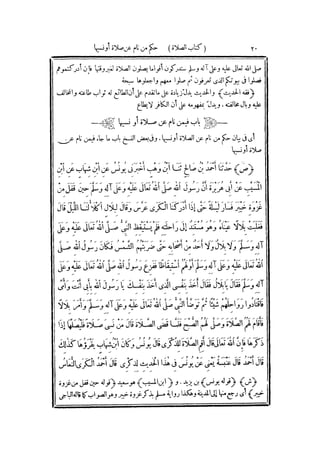 ٢٠ ( كتاب الصلاة ) حكم من نام عن صلاة أو نسيها
صلى الله تعالى عليه وعلى آله وسلم ستدركون أقواما يصلون الصلاة لغير وقتها فإن أدركتموهم
فصلوا فى بيوتكم الذى تعرفون ثم صلوا معهم واجعلوها سبحة
﴿فقه الحديث﴾ والحديث يدل زيادة على ما تقدم على أن الطائع له ثواب طاعته والمخالف
عليه وبال مخالفته . ويدل بمفهومه على أن الكافر لا يطاع
باب فيمن نام عن صلاة أو نسيها
أى فى بيان حكم من نام عن الصلاة أو نسيها . وفى بعض النسخ باب ما جاء فيمن نام عن
صلاة أو نسيها
﴿ص﴾ حَدَّثَنَا أَحْمَدُ بْنُ صَالِحٍ ثَنَا ابْنُ وَهْبٍ أَخْبَرَنِى يُونُسُ عَنِ ابْنِ شِهَابٍ عَنِ ابْنِ
الْمُسَيَّبِ عَنْ أَبِى هُرَيْرَةَ أَنَّ رَسُولَ اللهِ صَلَّى اللهُ تَعَالَى عَلَيْهِ وَعَلَى آلِهِ وَسَلَّمَ حِينَ قَفَلَ مِنْ
غَزْوَةِ خَيْبَرَ فَسَارَ لَيْلَةً حَتَّى إِذَا أَدْرَكَنَا الْكَرَى عَرَّسَ وَقَالَ لِبِلَالٍ اكْلَأْ لَنَا اللَّيْلَ قَالَ
فَغَلَبَتْ بِلَالًا عَيْنَاهُ وَهُوَ مُسْتَنِدٌ إِلَى رَاحِلَتِهِ فَلَمْ يَسْتَيْقِظِ النَّبِىُّ صَلَّى اللهُ تَعَالَى عَلَيْهِ وَعَلَى
آلِهِ وَسَلَّمَ وَلَا بِلَالٌ وَلَا أَحَدٌ مِنْ أَصْحَابِهِ حَتَّى ضَرَبَتْهُمُ الشَّمْسُ فَكَانَ رَسُولُ اللهِ صَلَّى
اللهُ تَعَالَى عَلَيْهِ وَعَلَى آلِهِ وَسَلَّمَ أَوَّلَهُمُ اسْتِيقَاظًا فَفَزِعَ رَسُولُ اللهِ صَلَّى اللهُ تَعَالَى عَلَيْهِ وَعَلَى
آلِهِ وَسَلَّمَ فَقَالَ يَا بِلَالُ فَقَالَ أَخَذَ بِنَفْسِى الَّذِى أَخَذَ بِنَفْسِكَ يَا رَسُولَ اللهِ بِأَبِى أَنْتَ وَأُمِّى
فَاقْتَادُوا رَوَاحِلَهُمْ شَيْئًا ثُمَّ تَوَضَّأَ النَّبِىُّ صَلَّى اللهُ تَعَالَى عَلَيْهِ وَعَلَى آلِهِ وَسَلَّمَ وَأَمَرَ بِلَالًا
فَأَقَامَ لَهُمُ الصَّلَاةَ وَصَلَّى لَهُمُ الصُّبْحَ فَلَمَّا قَضَى الصَّلَاةَ قَالَ مَنْ نَسِىَ صَلَاةً فَلْيُصَلِّهَا إِذَا
ذَكَرَهَا فَإِنَّ اللهَ تَعَالَى قَالَ أَقِمِ الصَّلَاةَ لِلذِّكْرَى قَالَ يُونُسُ وَكَانَ ابْنُ شِهَابٍ يَقْرَؤُهَا كَذَلِكَ
قَالَ أَحْمَدُ قَالَ عَنْبَسَةُ يَعْنِى عَنْ يُونُسَ فِى هَذَا الْحَدِيثِ لِذِكْرِى قَالَ أَحْمَدُ الْكَرَى النُّعَاسُ
﴿ش﴾ ﴿قوله يونس﴾ بن يزيد . و ﴿ابن المسيب﴾ هو سعيد ﴿قوله حين قفل من غزوة
خيبر﴾ أى رجع منها إلى المدينة وهكذا رواية مسلم بذكر غزوة خيبر وهو الصواب كما قاله الباجى